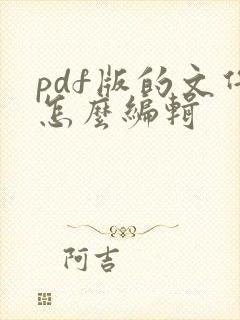 pdf版的文件
怎麼編輯
阿吉